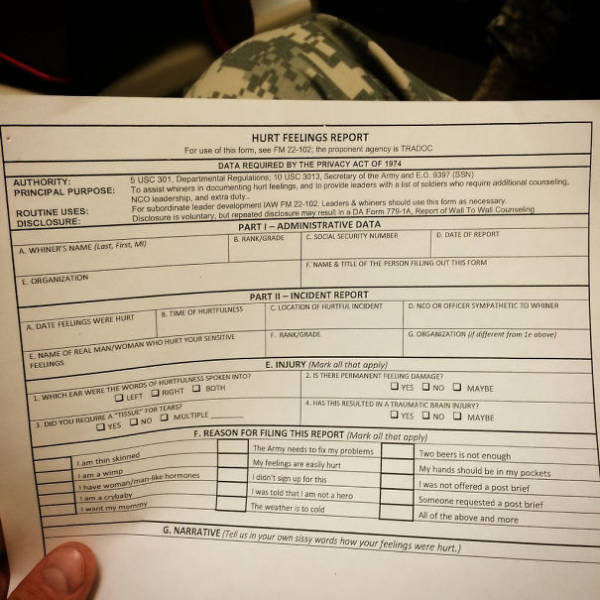 HURT FEELINGS REPORT
For use of this form, see FM 22-102; the proponent agency is TRADOC
DATA REQUIRED BY THE PRIVACY ACT OF 1974
AUTHORITY: 5 USC 301, Departmental Regulations; 10 USC 3013, Secretary of the Army and E.O. 9397 (SSN)
PRINCIPAL PURPOSE: To assist whiners in documenting hurt feelings, and to provide leaders with a list of soldiers who require additional counseling,
NCO leadership, and extra duty..
ROUTINE USES: For subordinate leader development IAW FM 22-102. Leaders & whiners should use this form as necessary.
DISCLOSURE: Disclosure is voluntary, but repeated disclosure may result in a DA Form 779-1A, Report of Wall To Wall Counseling
PART I – ADMINISTRATIVE DATA
A. WHINER'S NAME (Last, First, MI) B. RANK/GRADE C. SOCIAL SECURITY NUMBER D. DATE OF REPORT
E. ORGANIZATION F. NAME & TITLE OF THE PERSON FILLING OUT THIS FORM
PART II – INCIDENT REPORT
A. DATE FEELINGS WERE HURT B. TIME OF HURTFULNESS C. LOCATION OF HURTFUL INCIDENT D. NCO OR OFFICER SYMPATHETIC TO WHINER
E. NAME OF REAL MAN/WOMAN WHO HURT YOUR SENSITIVE FEELINGS F. RANK/GRADE G. ORGANIZATION (if different from 1e above)
E. INJURY (Mark all that apply)
1. WHICH EAR WERE THE WORDS OF HURTFULNESS SPOKEN INTO? 2. IS THERE PERMANENT FEELING DAMAGE?
☐ LEFT ☐ RIGHT ☐ BOTH ☐ YES ☐ NO ☐ MAYBE
3. DID YOU REQUIRE A "TISSUE" FOR TEARS? 4. HAS THIS RESULTED IN A TRAUMATIC BRAIN INJURY?
☐ YES ☐ NO ☐ MULTIPLE ______ ☐ YES ☐ NO ☐ MAYBE
F. REASON FOR FILING THIS REPORT (Mark all that apply)
I am thin skinned The Army needs to fix my problems Two beers is not enough
I am a wimp My feelings are easily hurt My hands should be in my pockets
I have woman/man-like hormones I didn't sign up for this I was not offered a post brief
I am a crybaby I was told that I am not a hero Someone requested a post brief
I want my mommy The weather is to cold All of the above and more
G. NARRATIVE (Tell us in your own sissy words how your feelings were hurt.)